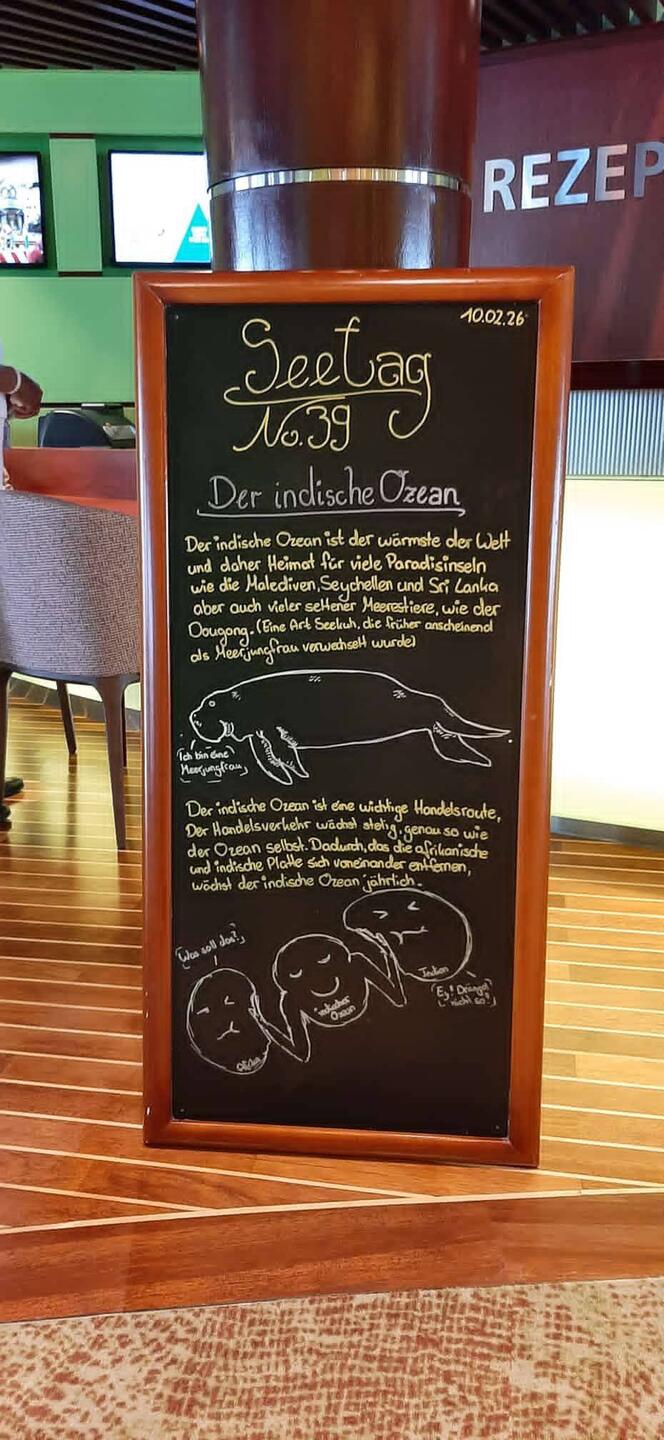 REZEP
10.02.26
Seetag
No. 39
Der indische Ozean
Der indische Ozean ist der wärmste der Welt
und daher Heimat für viele Paradisinseln
wie die Malediven, Seychellen und Sri Lanka
aber auch vieler seltener Meerestiere, wie der
Dougong. (Eine Art Seekuh, die früher anscheinend
als Meerjungfrau verwechselt wurde)
Ich bin eine
Meerjungfrau
Der indische Ozean ist eine wichtige Handelsroute,
Der Handelsverkehr wächst stetig, genau so wie
der Ozean selbst. Dadurch, das die afrikanische
und indische Platte sich voneinander entfernen,
wächst der indische Ozean jährlich.
Was soll das?
indischer
Ozean
Indien
Ey! Drängel
nicht so!